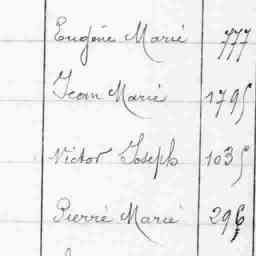 Eugène Marie 777
Jean Marie 1795
Victor Joseph 1035
Pierre Marie 296